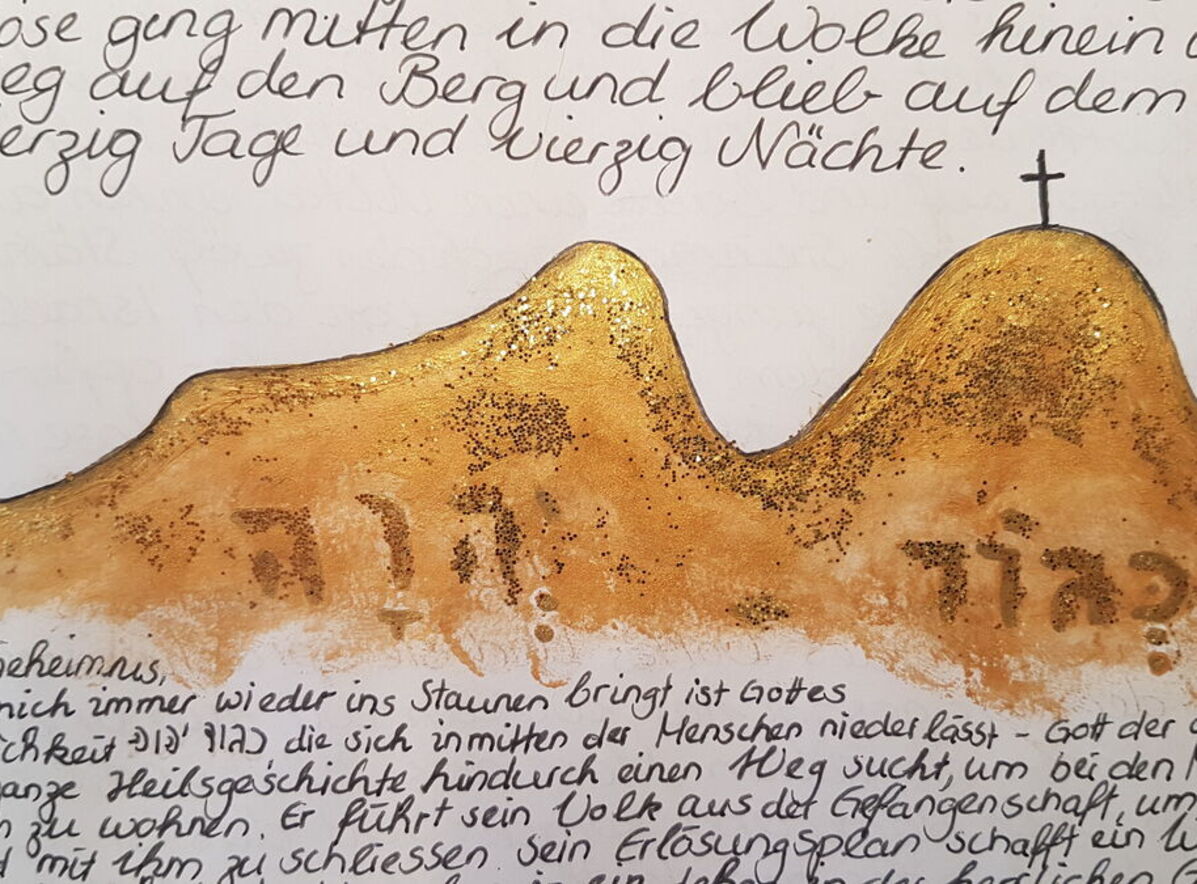 ose ging mitten in die Wolke hinein
eg auf den Berg und blieb auf dem
erzig Tage und vierzig Nächte.
כְּבוֹד יְהוָה
Geheimnis,
mich immer wieder ins Staunen bringt ist Gottes
ichkeit כבוד יהוה, die sich inmitten der Menschen niederlässt – Gott der
ganze Heilsgeschichte hindurch einen Weg sucht, um bei den
zu wohnen. Er führt sein Volk aus der Gefangenschaft, um
mit ihm zu schliessen. Sein Erlösungsplan schafft ein